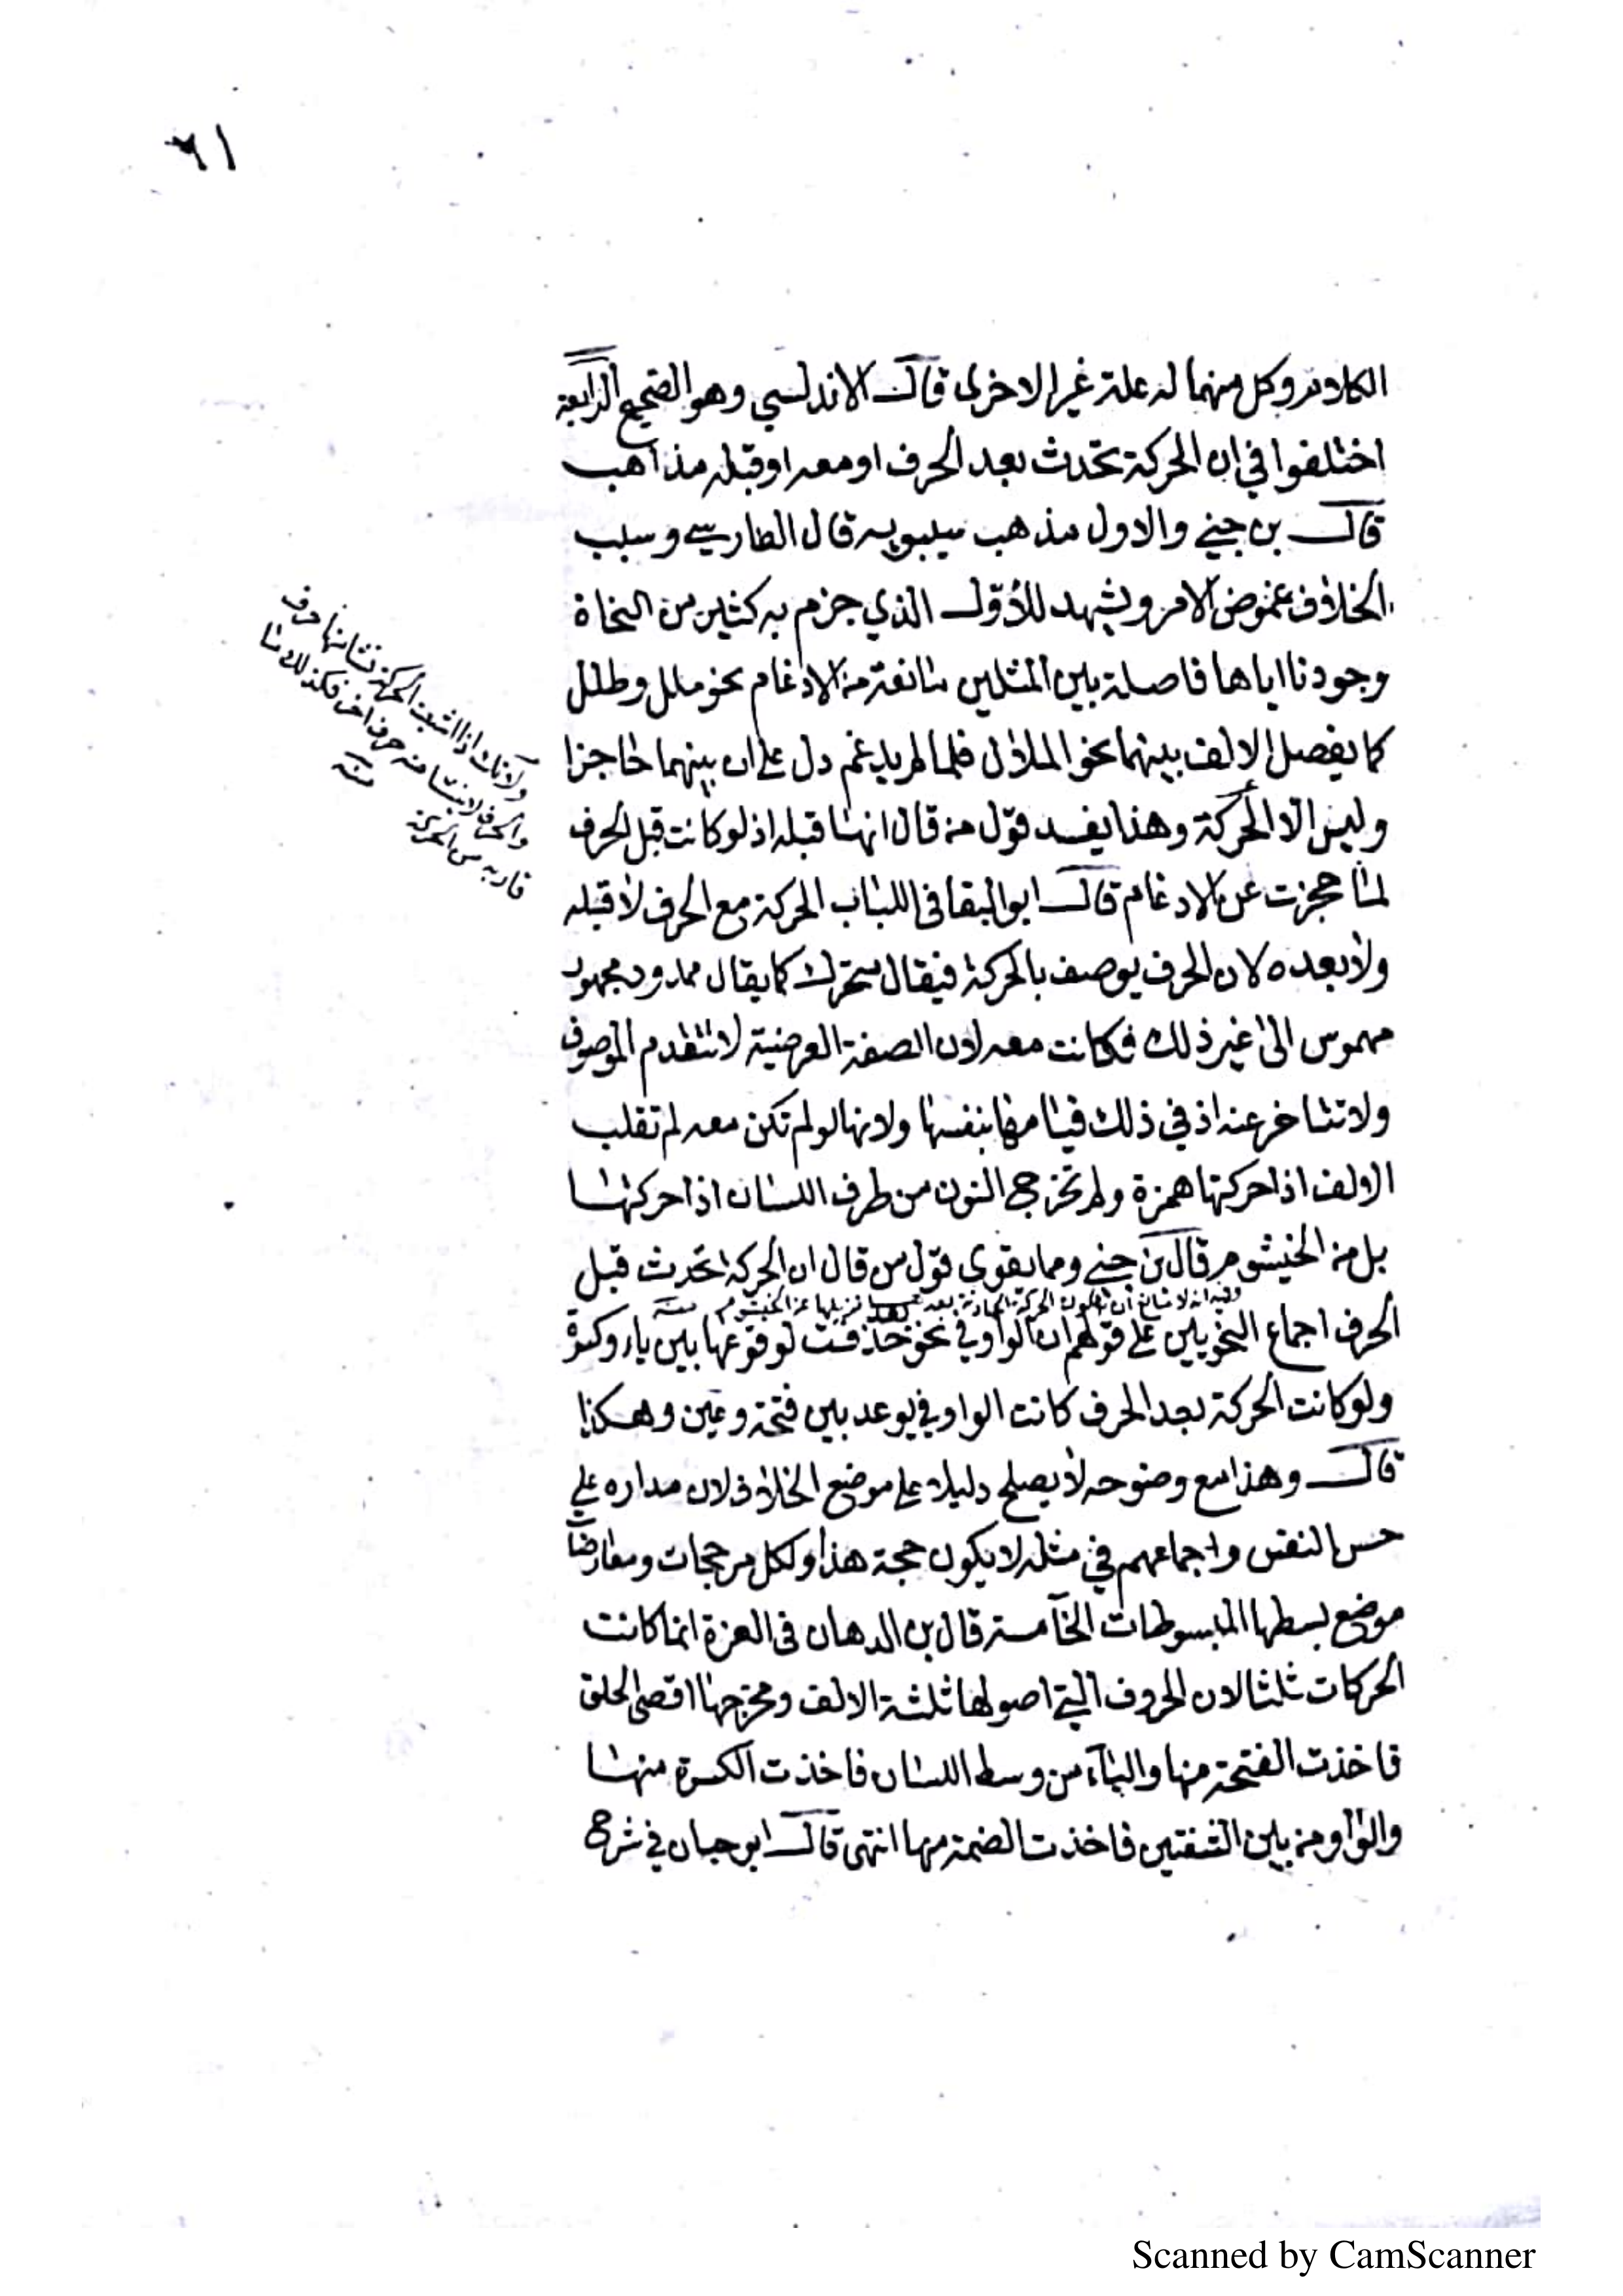 ٦١
الكلام وكل منهما له علة غير الاخرى قال الاندلسي وهو الصحيح الرابعة
اختلفوا في ان الحركة تحدث بعد الحرف او معه او قبله مذاهب
قال بن جني والاول مذهب سيبويه قال الفارسي وسبب
الخلاف غموض الامر ويشهد للاول الذي جزم به كثير من النحاة
وجودنا اياها فاصلة بين المثلين مانعة من الادغام نحو ملل وطلل
كما يفصل الالف بينهما نحو الملال فلما لم يدغم دل على ان بينهما حاجزا
وليس الا الحركة وهذا يفسد قول من قال انها قبله اذ لو كانت قبل الحرف
لما حجزت عن الادغام قال ابو البقا في اللباب الحركة مع الحرف لا قبله
ولا بعده لان الحرف يوصف بالحركة فيقال متحرك كما يقال ممدود مجهور
مهموس الى غير ذلك فكانت معه لان الصفة العرضية لا تتقدم الموصوف
ولا تتاخر عنه اذ في ذلك قيامها بنفسها ولانها لو لم تكن معه لم تقلب
الالف اذا حركتها همزة ولم تخرج النون من طرف اللسان اذا حركتها
بل من الخيشوم قال بن جني ومما يقوي قول من قال ان الحركة تحدث قبل
وفيه انه لا مانع ان تكون الحركة الحادثة بعد تزيلها عن الخيشوم منه
الحرف اجماع النحويين على قولهم ان الواو في نحو حذفت لوقوعها بين ياء وكسرة
ولو كانت الحركة بعد الحرف كانت الواو في يوعد بين فتحة وعين وهكذا
قال وهذا مع وضوحه لا يصلح دليلا على موضع الخلاف لان مداره على
حس النفس واجماعهم في مثله لا يكون حجة هذا ولكل مرجحات ومعارضات
موضع بسطها المبسوطات الخامسة قال بن الدهان في الغرة انما كانت
الحركات ثلثا لان الحروف التي اصولها ثلثة الالف ومخرجها اقصى الحلق
فاخذت الفتحة منها والياء من وسط اللسان فاخذت الكسرة منها
والواو من بين الشفتين فاخذت الضمة منها انتهى قال ابو حيان في شرح
ولانك اذا اشبعت الحركة نشا منها حرف
والحرف لا ينشا منه حرف اخر فكذلك ما
قاربه من الحركة
منه
Scanned by CamScanner